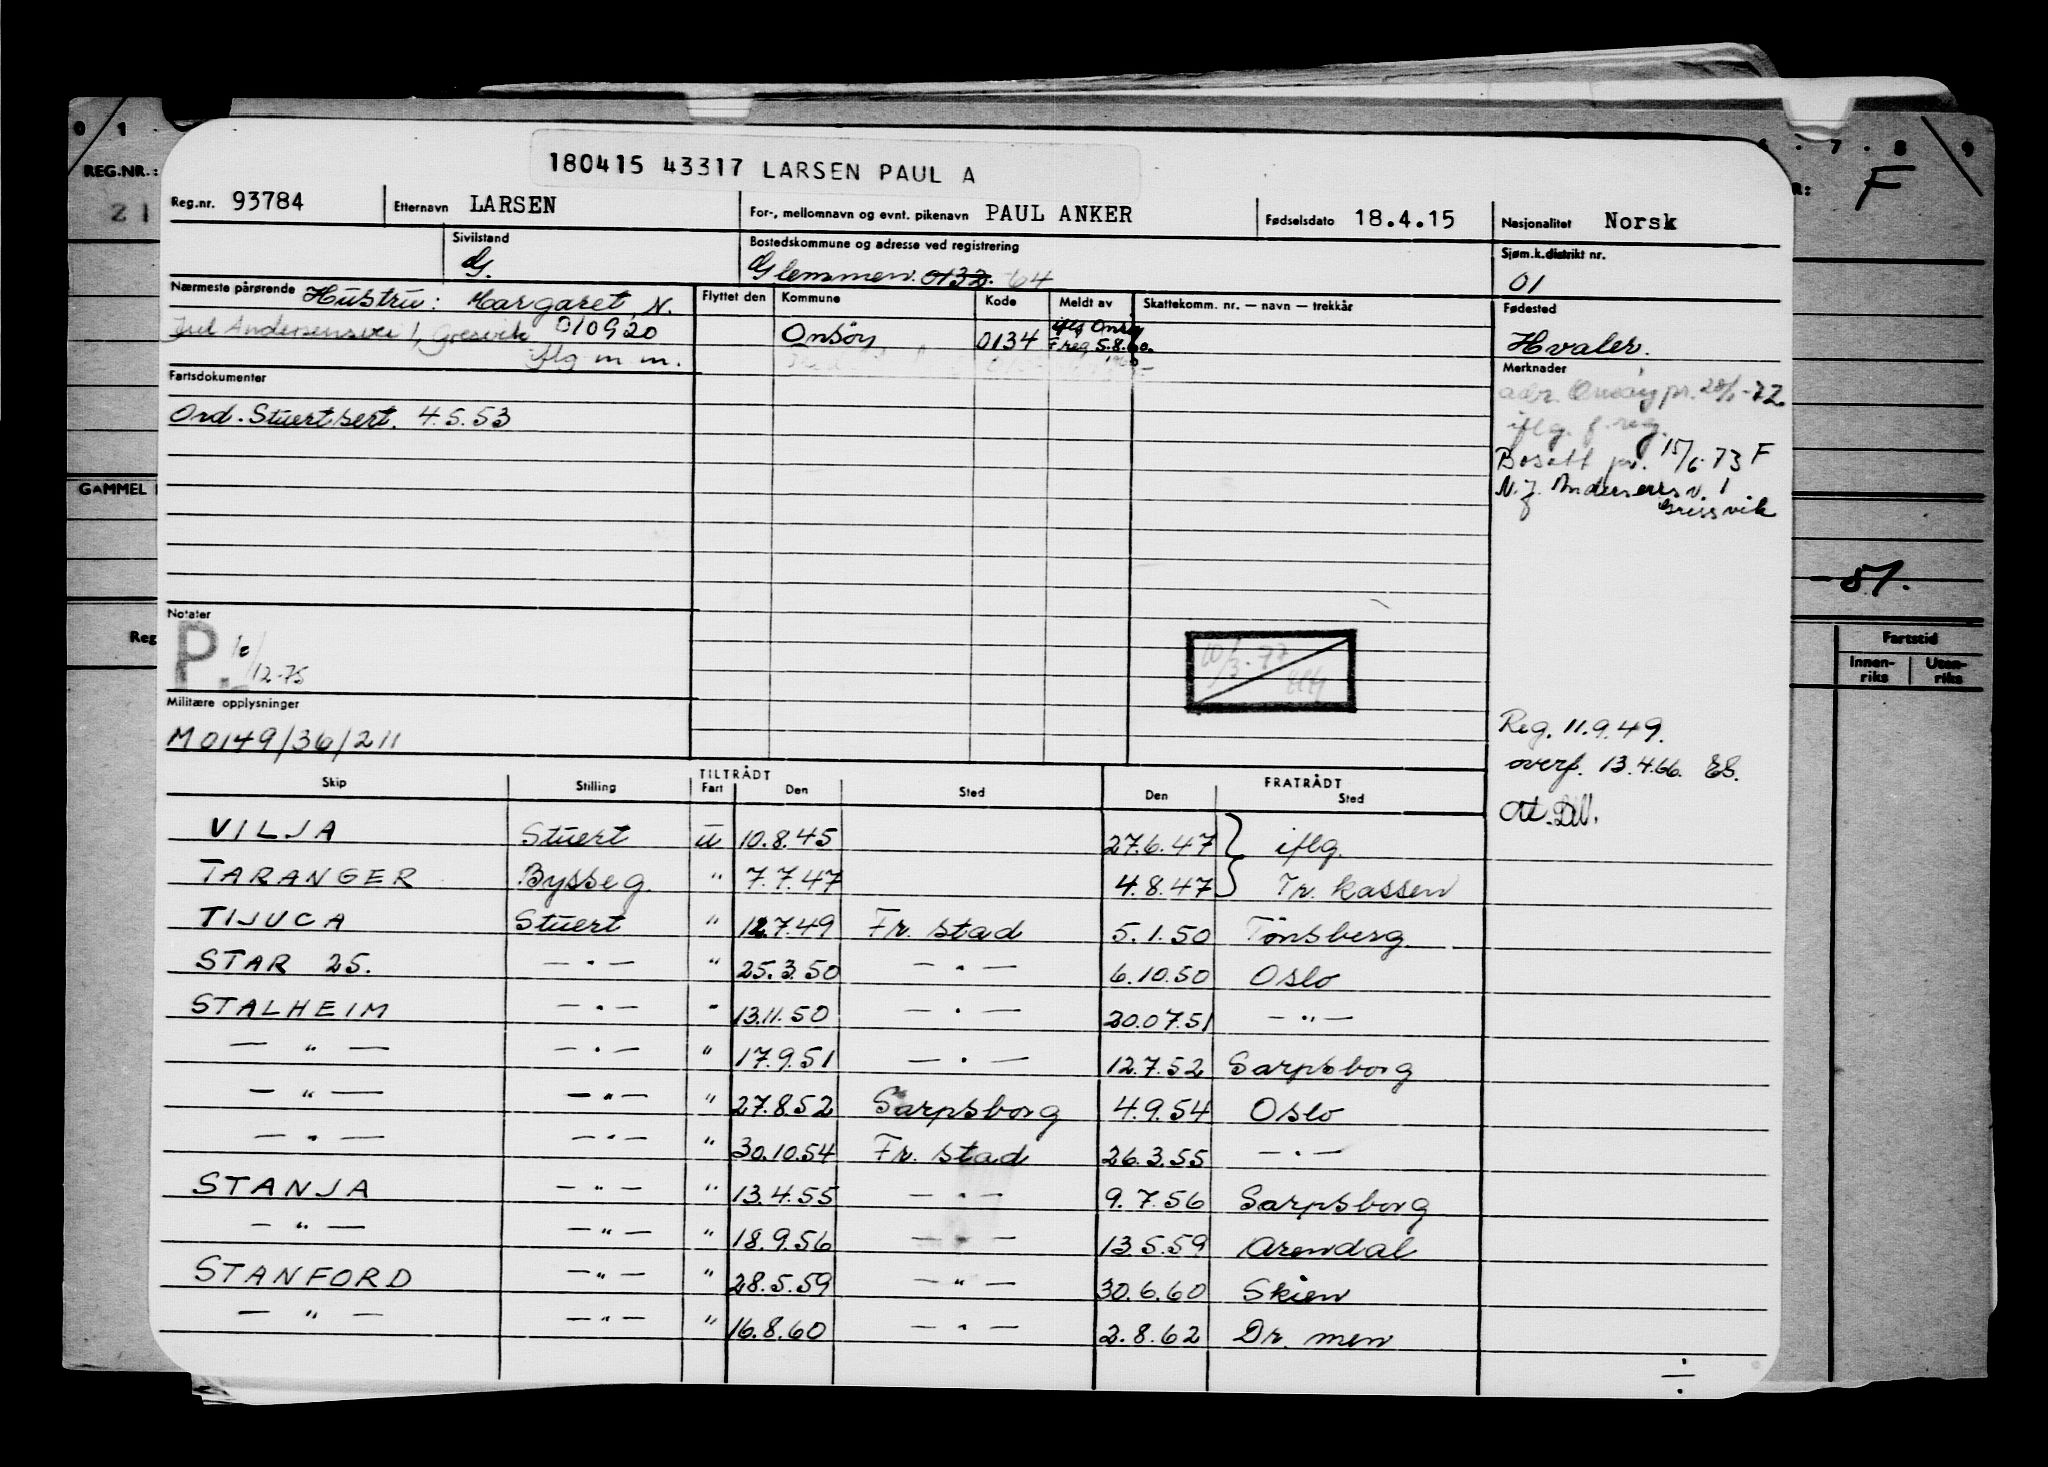 0 1 .
. 7 . 8 9
REG.NR.:
R: F
21
180415 43317 LARSEN PAUL A
Reg.nr. 93784 Etternavn LARSEN For-, mellomnavn og evnt. pikenavn PAUL ANKER Fødselsdato 18.4.15 Nasjonalitet Norsk
Sivilstand Bostedskommune og adresse ved registrering Sjøm.k.distrikt nr.
G. Glemmen. 0132. -64 01
Nærmeste pårørende Hustru: Margaret, N. Flyttet den Kommune Kode Meldt av Skattekomm. nr. — navn — trekkår Fødested
Jul Andersensvei 1, Gresvik 010920 Onsöy 0134 iflg Onsöy
F reg 5.8.60. Hvaler.
iflg m.m.
Fartsdokumenter Merknader
adr. Onsöy pr. 28/1-72.
Ord. Stuertsert. 4.5.53
iflg. f. reg.
Bosatt pr. 15/6-73 F
GAMMEL
N. J. Andersens v. 1
Gressvik
-51.
Notater
Reg Fartstid
P. 12-75 10/3-77 Innen-riks Uten-riks
Militære opplysninger
M 0149/36/211
Reg. 11.9.49.
overf. 13.4.66. ES.
Skip Stilling TILTRÅDT Fart Den Sted FRATRÅDT Den Sted
VILJA Stuert u 10.8.45 27.6.47 } iflg.
TARANGER Bysseg. " 7.7.47 4.8.47 } Tr. kassen
TIJUCA Stuert " 12.7.49 Fr. stad 5.1.50 Tönsberg
STAR 25. — " — " 25.3.50 — " — 6.10.50 Oslo
STALHEIM — " — " 13.11.50 — " — 20.07.51 — " —
— " — — " — " 17.9.51 — " — 12.7.52 Sarpsborg
— " — — " — " 27.8.52 Sarpsborg 4.9.54 Oslo
— " — — " — " 30.10.54 Fr. stad 26.3.55 — " —
STANJA — " — " 13.4.55 — " — 9.7.56 Sarpsborg
— " — — " — " 18.9.56 — " — 13.5.59 Arendal
STANFORD — " — " 28.5.59 — " — 30.6.60 Skien
— " — — " — " 16.8.60 — " — 2.8.62 Dr. men